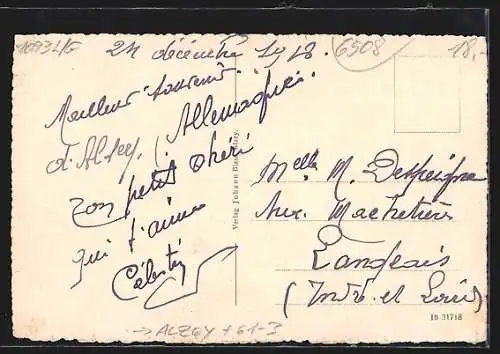 10931/G
24 décembre 1918.
6508
18.-
Meilleur souvenir
d'Alzey, Allemagne.
Ton petit chéri
qui t'aime
Célestin
Verlag Johann
Melle M. Despeigne
Aux Machetières
Langeais
(Indre et Loire)
18 31718
→ ALZEY + 61-3